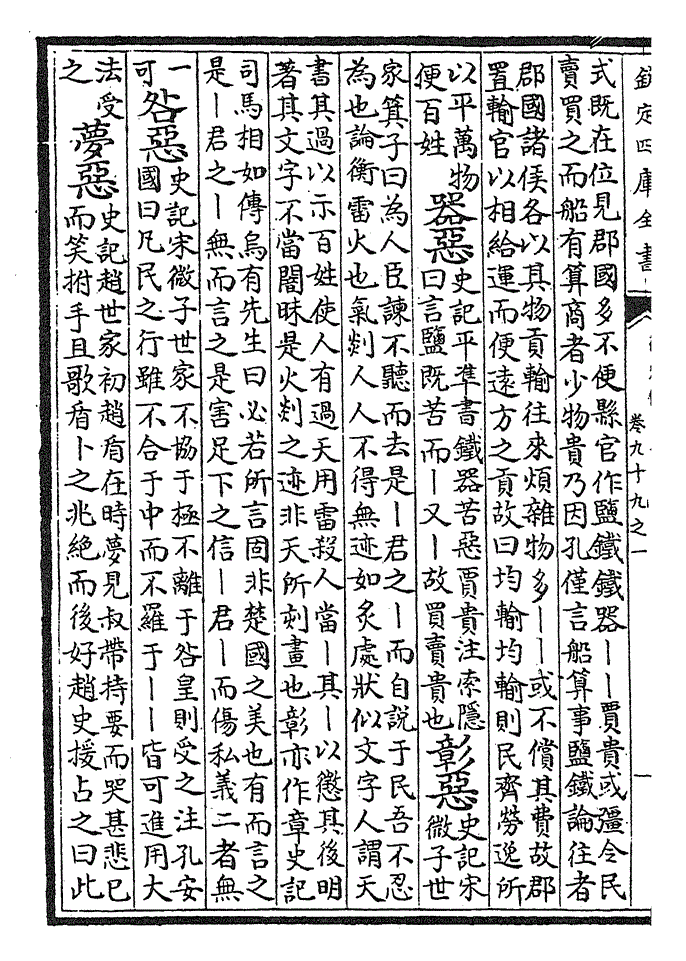 欽定四庫全書
卷九十九之一
式既在位見郡國多不便縣官作鹽鐵鐵器丨丨賈貴或彊令民
賣買之而船有算商者少物貴乃因孔僅言船算事鹽鐵論往者
郡國諸侯各以其物貢輸往來煩雜物多丨丨或不償其費故郡
置輸官以相給運而便遠方之貢故曰均輸均輸則民齊勞逸所
以平萬物
便百姓
器惡
史記平準書鐵器苦惡賈貴注索隱
曰言鹽既苦而丨又丨故買賣貴也
彰惡
史記宋
微子世
家箕子曰為人臣諫不聽而去是丨君之丨而自説于民吾不忍
為也論衡雷火也氣剡人人不得無迹如炙處狀似文字人謂天
書其過以示百姓使人有過天用雷殺人當丨其丨以懲其後明
著其文字不當闇昧是火剡之迹非天所刻畫也彰亦作章史記
司馬相如傳烏有先生曰必若所言固非楚國之美也有而言之
是丨君之丨無而言之是害足下之信丨君丨而傷私義二者無
一
可
咎惡
史記宋微子世家不協于極不離于咎皇則受之注孔安
國曰凡民之行雖不合于中而不羅于丨丨皆可進用大
法受
之
夢惡
史記趙世家初趙盾在時夢見叔帶持要而哭甚悲已
而笑拊手且歌盾卜之兆絶而後好趙史援占之曰此